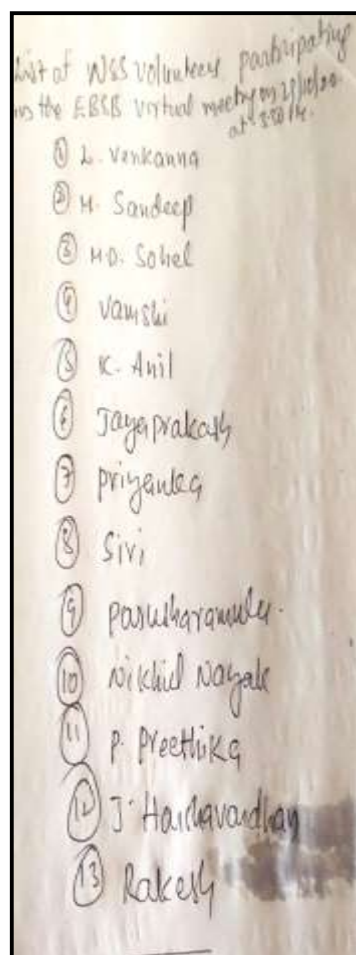 List of NSS volunteers participating
in the EBSB virtual meeting on
at 3:30
① L. Venkanna
② M. Sandeep
③ M.D. Sohel
④ Vamshi
⑤ K. Anil
⑥ Jayaprakash
⑦ Priyanka
⑧ Siri
⑨ Parusharamulu.
⑩ Nikhil Nayak
⑪ P. Preethika
⑫ J. Harshavardhan
⑬ Rakesh